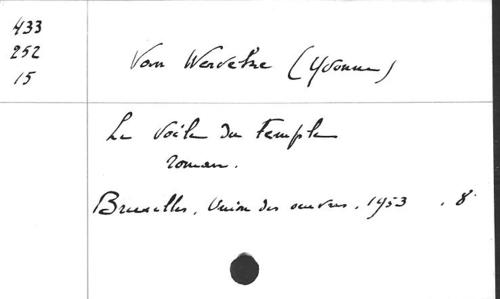 433
252
15
Van Werveke (Yvonne)
Le Voile du Temple
roman.
Bruxelles, Union des oeuvres, 1953 . 8°